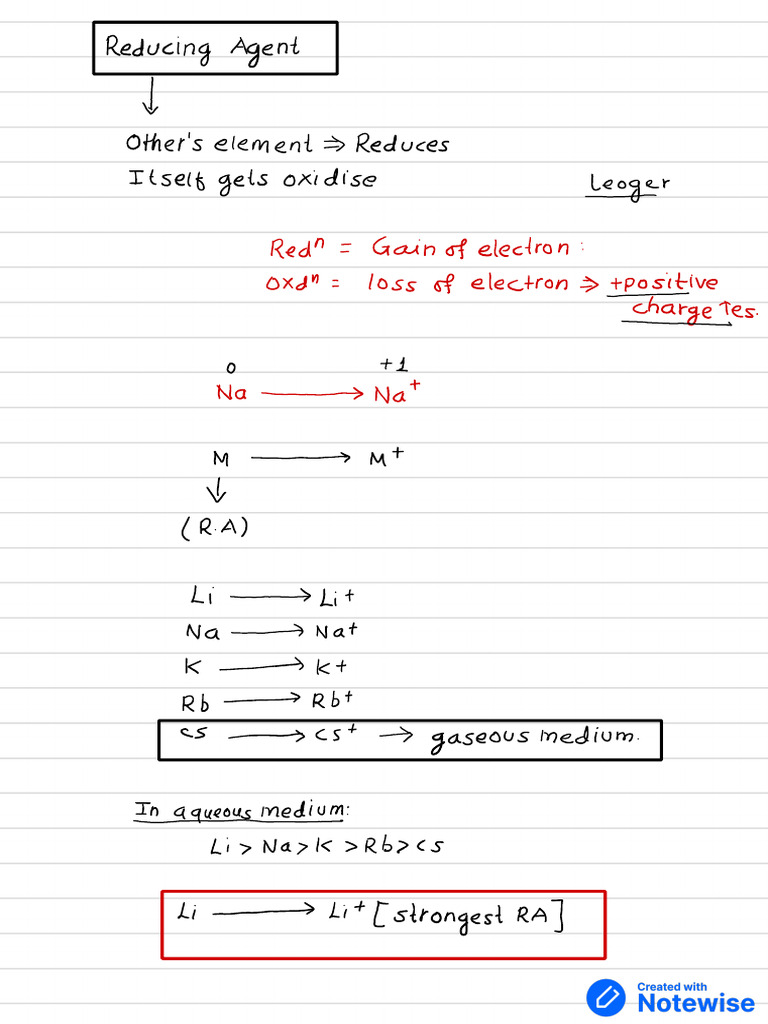 Reducing Agent
↓
Other's element ⇒ Reduces
Itself gets oxidise
Leoger
Redⁿ = Gain of electron:
Oxdⁿ = loss of electron ⇒ +positive
charge ↑es.
0 +1
Na ⟶ Na⁺
M ⟶ M⁺
↓
(R.A)
Li ⟶ Li⁺
Na ⟶ Na⁺
K ⟶ K⁺
Rb ⟶ Rb⁺
Cs ⟶ Cs⁺ → gaseous medium.
In aqueous medium:
Li > Na > K > Rb > Cs
Li ⟶ Li⁺ [strongest RA]
Created with
Notewise